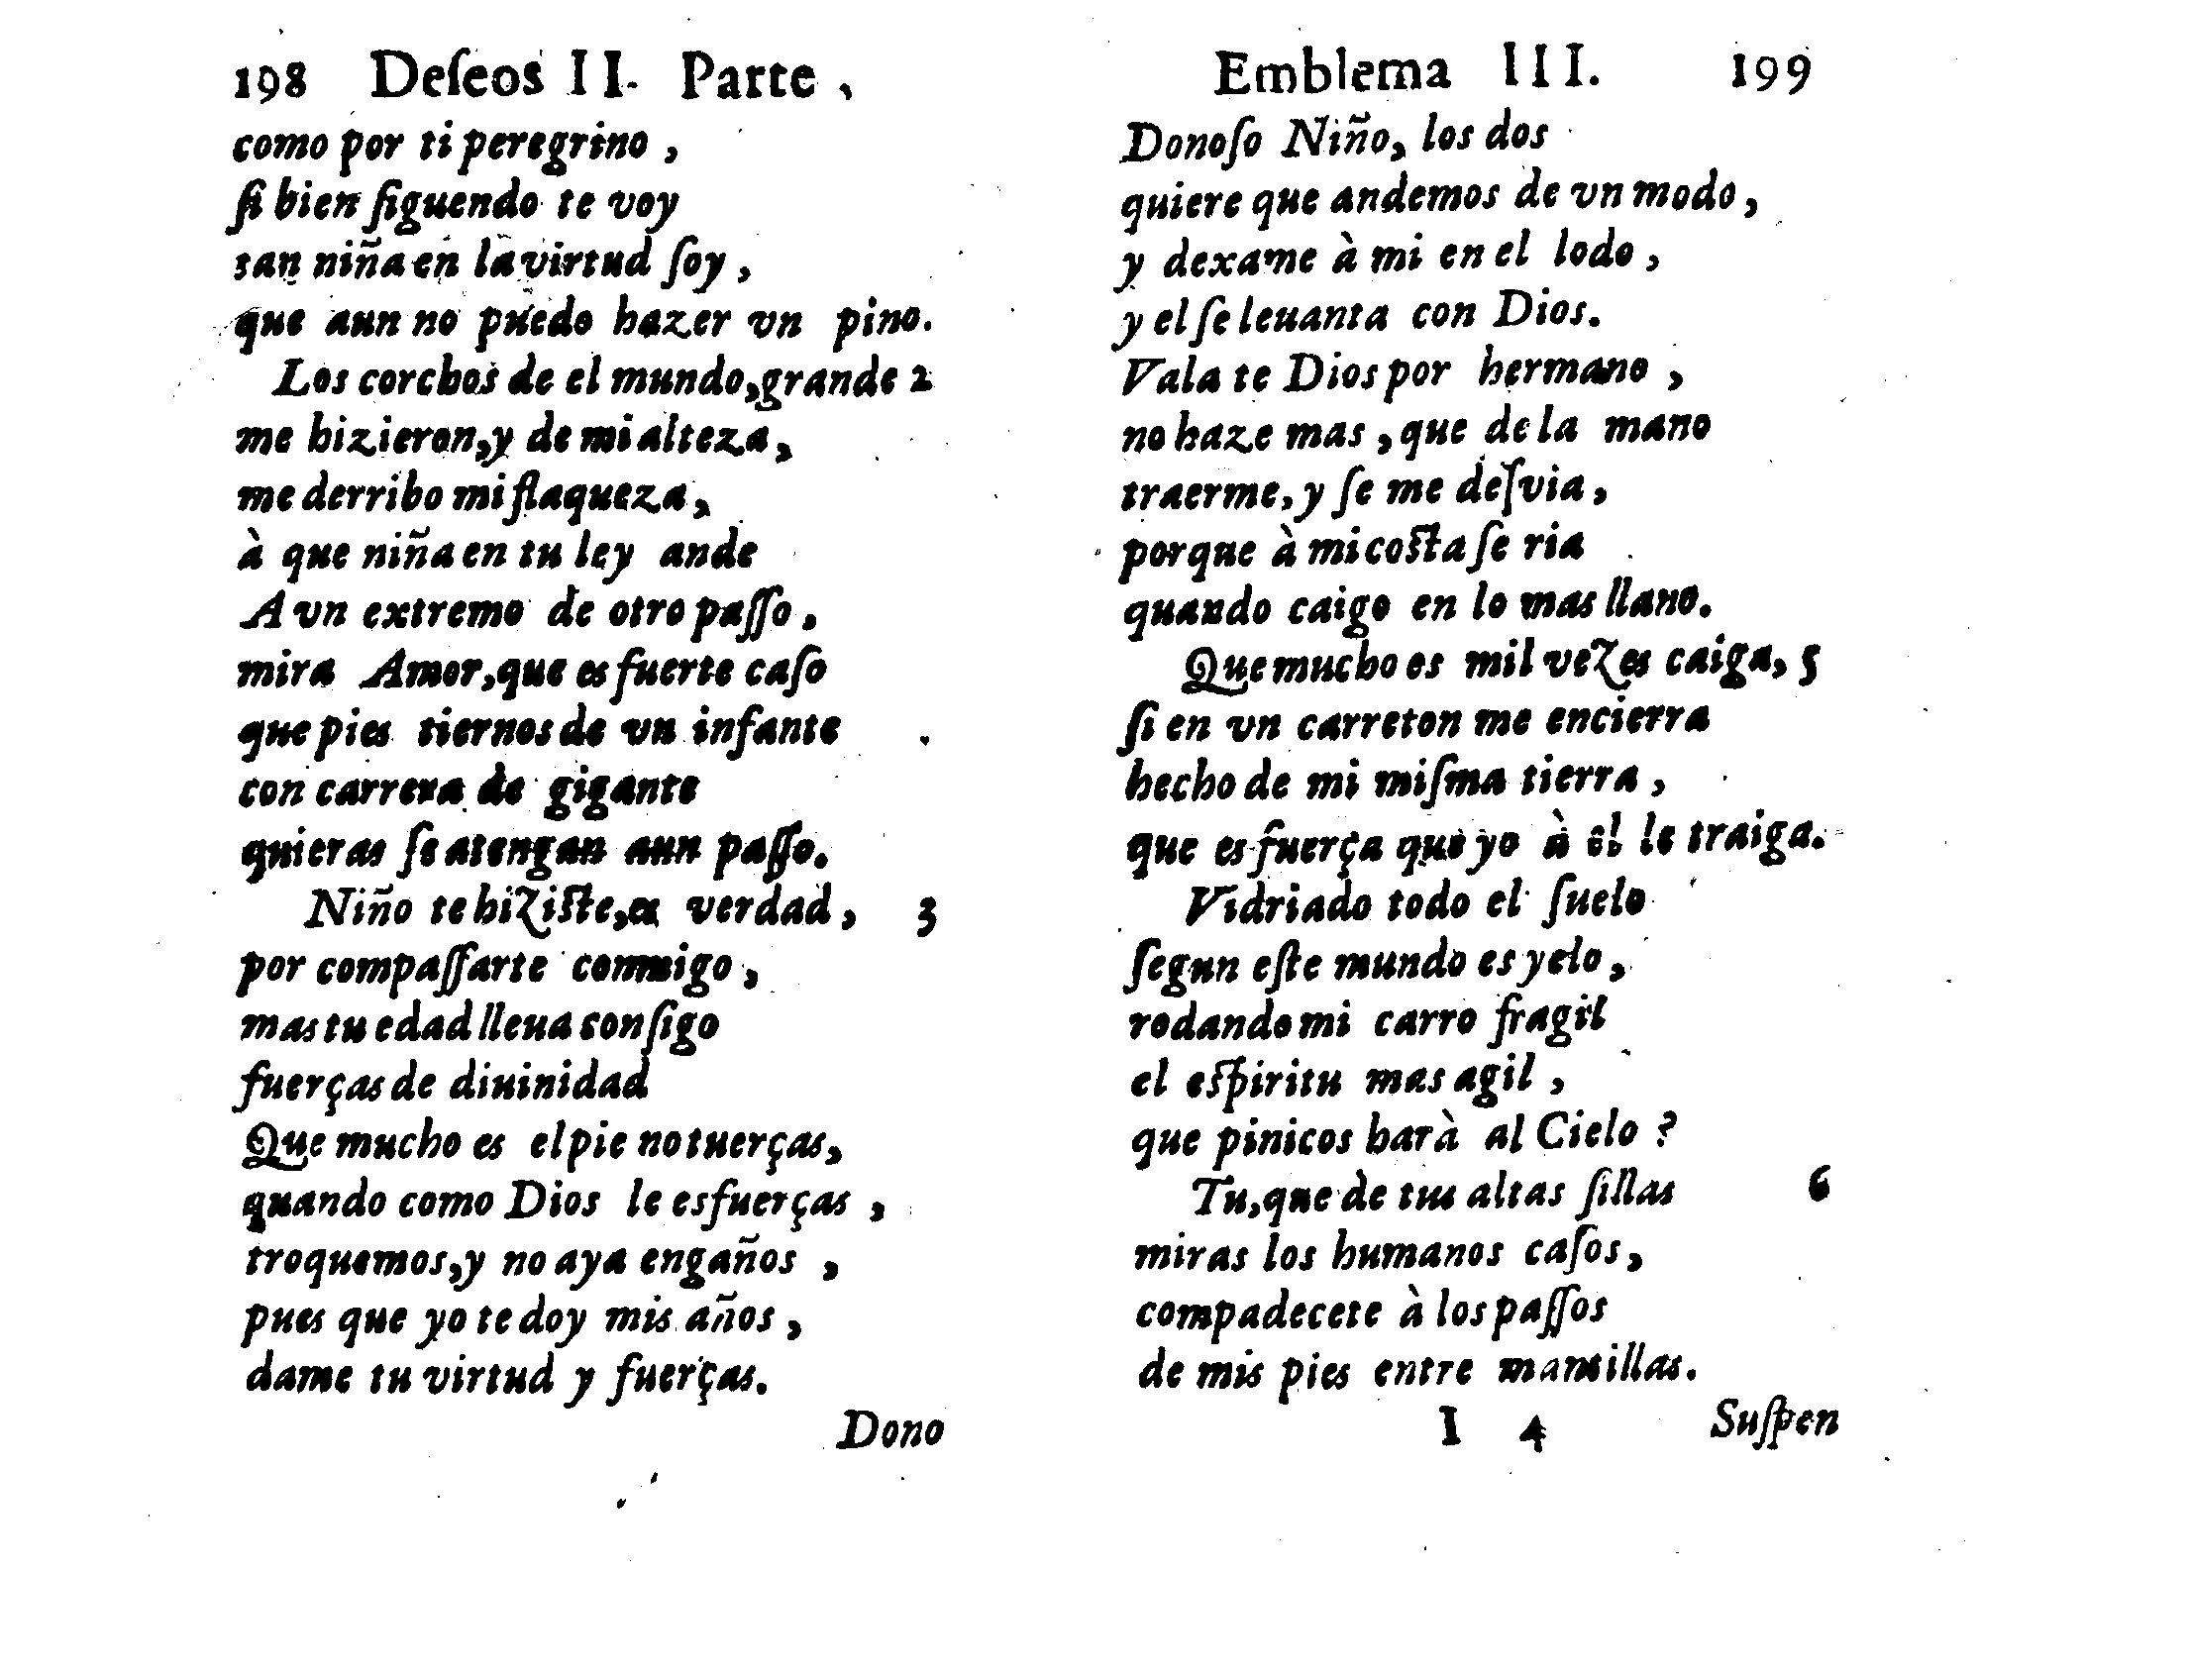 198 Deſeos II. Parte,
como por ti peregrino,
ſi bien ſiguendo te voy
tan niña en la virtud ſoy,
que aun no puedo hazer vn pino.
Los corchos de el mundo, grande 2
me hizieron, y de mi alteza,
me derribo mi flaqueza,
à que niña en tu ley ande
A vn extremo de otro paſſo,
mira Amor, que es fuerte caſo
que pies tiernos de vn infante
con carrera de gigante
quieras ſe atengan aun paſſo.
Niño te hiziſte, es verdad, 3
por compaſſarte conmigo,
mas tu edad lleua conſigo
fuerças de diuinidad
Que mucho es el pie no tuerças,
quando como Dios le esfuerças,
troquemos, y no aya engaños,
pues que yo te doy mis años,
dame tu virtud y fuerças.
Dono
Emblema III. 199
Donoſo Niño, los dos
quiere que andemos de vn modo,
y dexame à mi en el lodo,
y el ſe leuanta con Dios.
Vala te Dios por hermano,
no haze mas, que de la mano
traerme, y ſe me deſvia,
porque à mi coſta ſe ria
quando caigo en lo mas llano.
Que mucho es mil vezes caiga, 5
ſi en vn carreton me encierra
hecho de mi miſma tierra,
que es fuerça que yo à él le traiga.
Vidriado todo el ſuelo
ſegun eſte mundo es yelo,
rodando mi carro fragil
el eſpiritu mas agil,
que pinicos harà al Cielo?
Tu, que de tus altas ſillas 6
miras los humanos caſos,
compadecete à los paſſos
de mis pies entre mantillas.
I 4 Suſpen